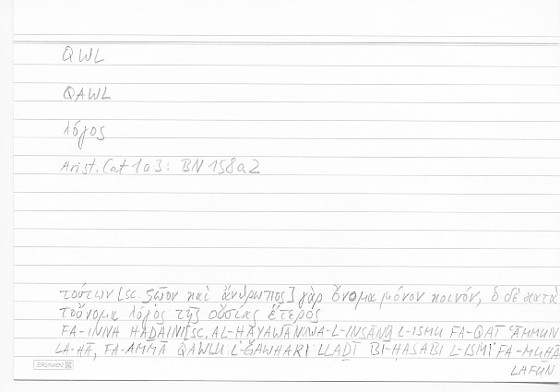 QWL
QAWL
λόγος
Arist. Cat 1a3: BN 158a2
τούτων [sc. ζῷον καὶ ἄνθρωπος] γὰρ ὄνομα μόνον κοινόν, ὁ δὲ κατὰ
τοὔνομα λόγος τῆς οὐσίας ἕτερος
FA-INNA HĀḎAINI [SC. AL-ḤAYAWĀN WA-L-INSĀN] L-ISMU FA-QAṬ ʿĀMMUN
LA-HĀ, FA-AMMĀ QAWLU L-ǦAWHARI LLAḎĪ BI-ḤASABI L-ISMI FA-MUḪĀ
LAFUN